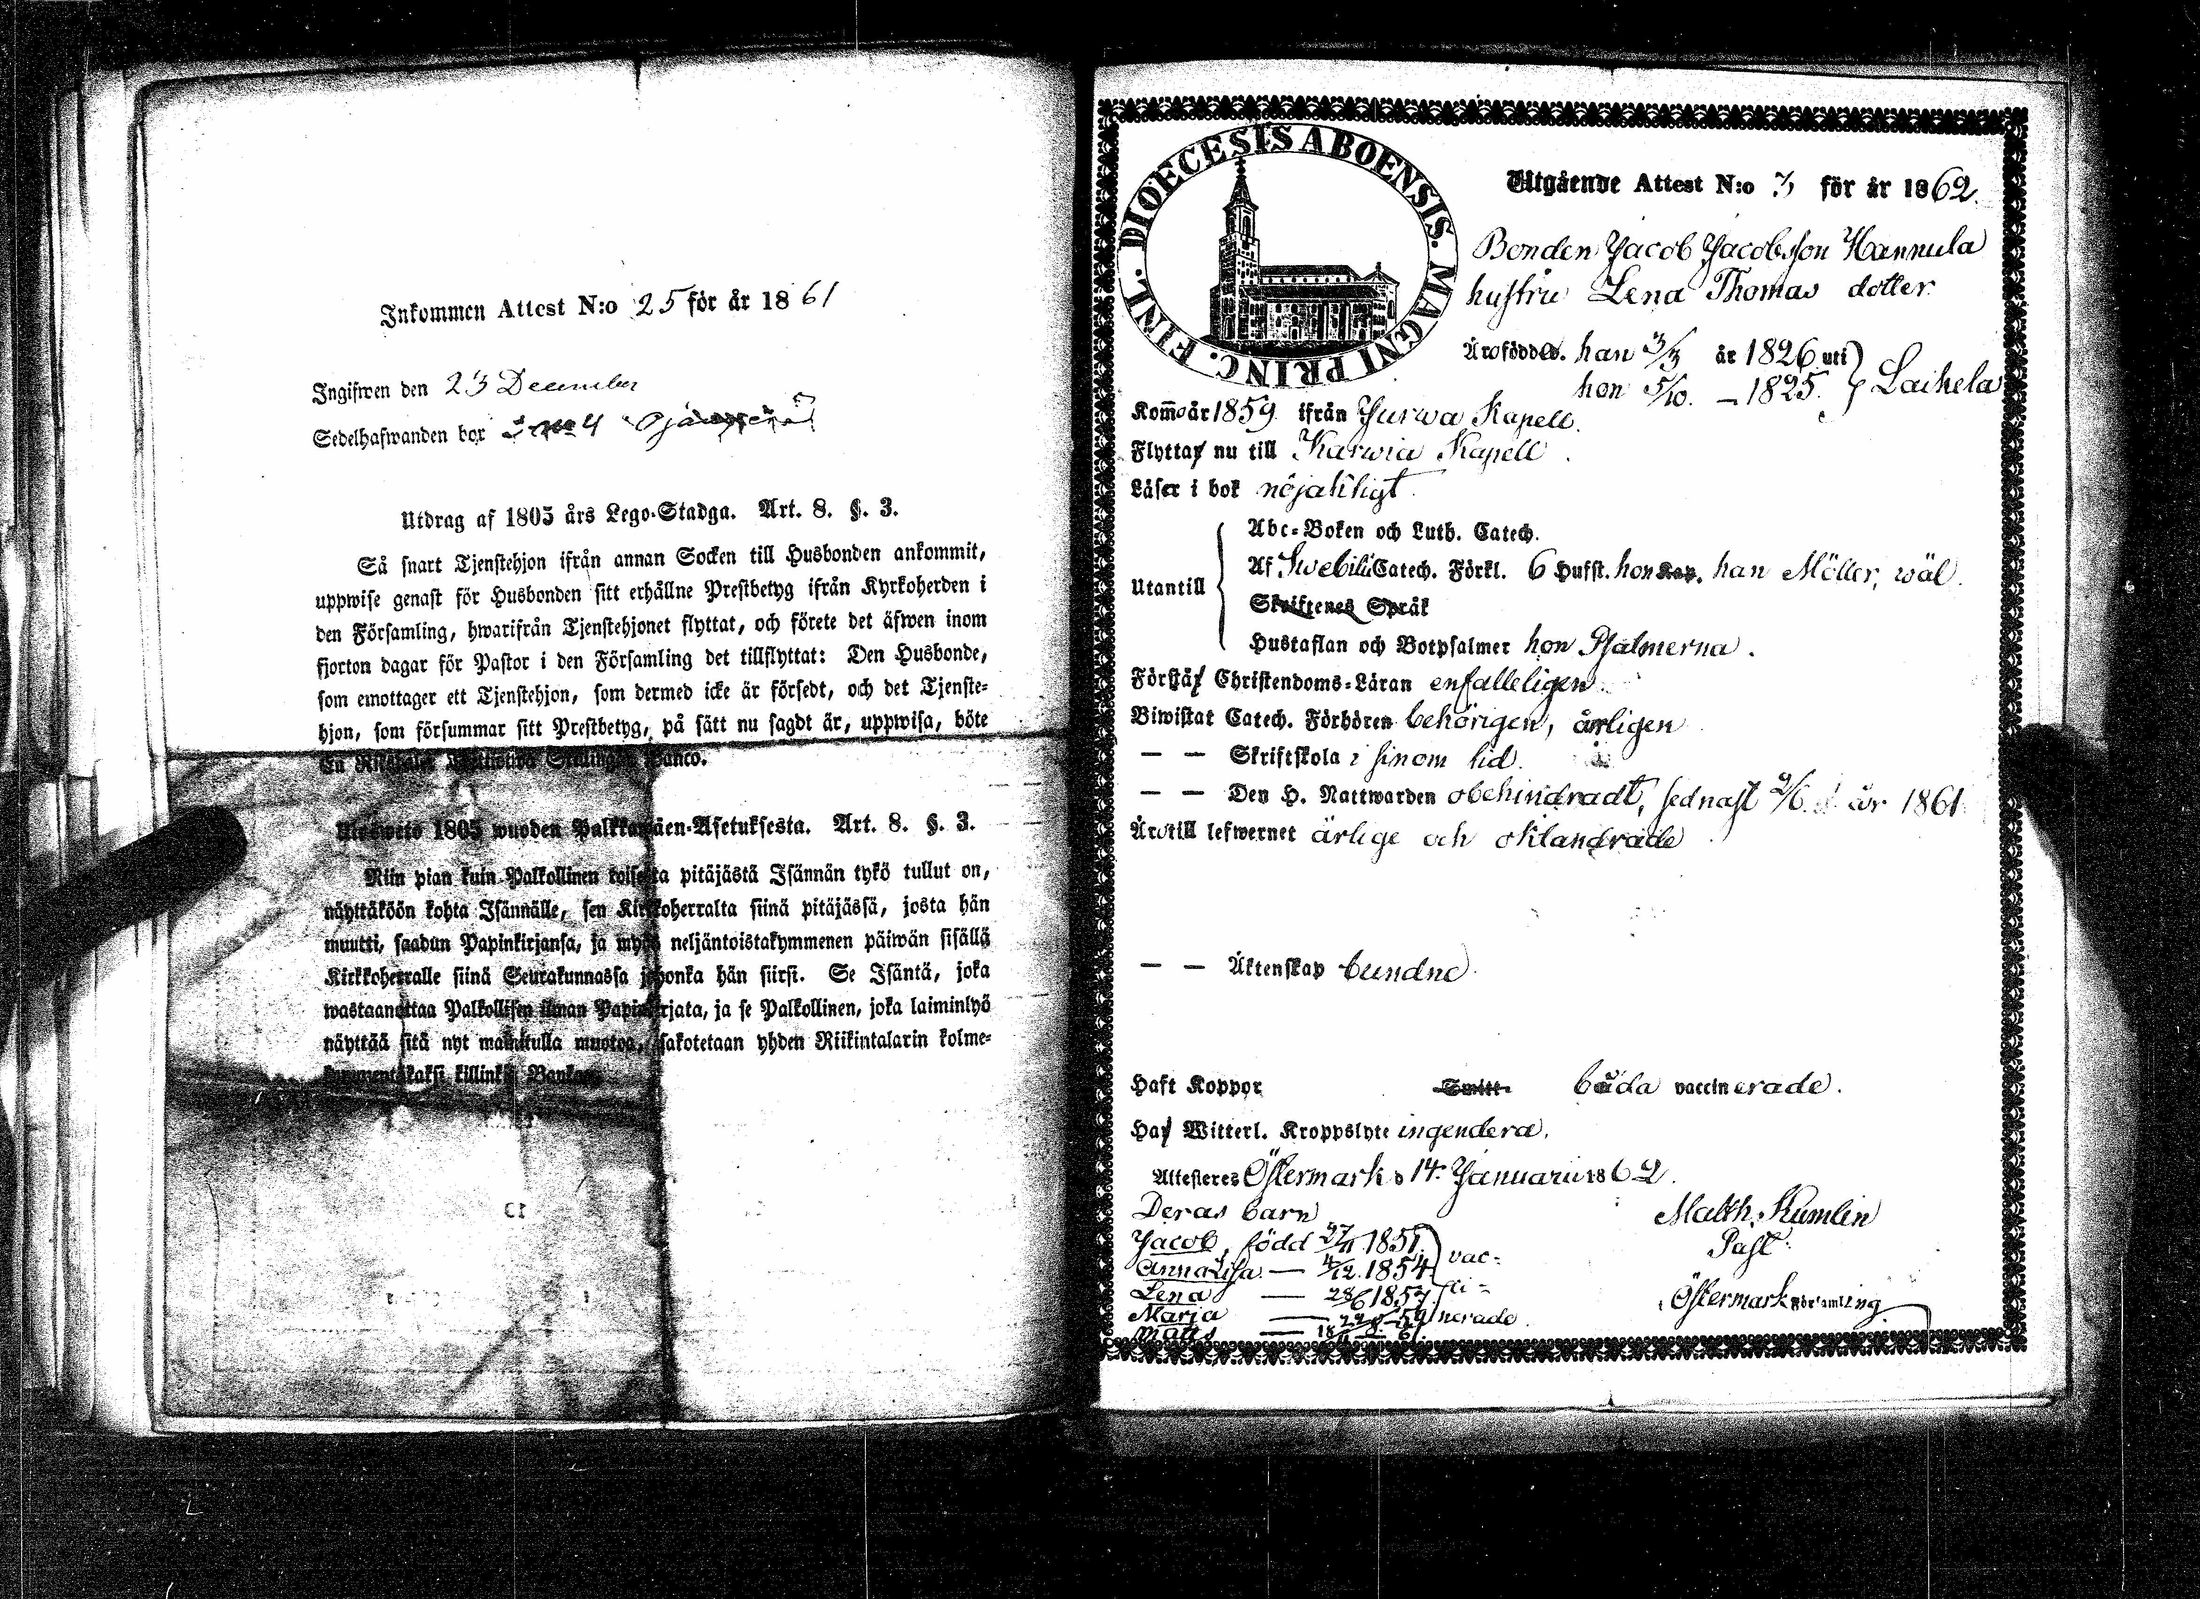 Inkommen Attest N:o 25 för år 1861
Ingifwen den 23 December
Sedelhafwanden bor N:o 4
Utdrag af 1805 års Lego-Stadga. Art. 8. §. 3.
Så snart Tjenstehjon ifrån annan Socken till Husbonden ankommit,
uppwise genast för Husbonden sitt erhållne Prestbetyg ifrån Kyrkoherden i
den Församling, hwarifrån Tjenstehjonet flyttat, och förete det äfwen inom
fjorton dagar för Pastor i den Församling det tillflyttat: Den Husbonde,
som emottager ett Tjenstehjon, som dermed icke är försedt, och det Tjenste-
hjon, som försummar sitt Prestbetyg, på sätt nu sagdt är, uppwisa, böte
En Riksdaler Banco.
1805 wuoden Palkkawäen-Asetuksesta. Art. 8. §. 3.
Niin pian kuin Palkollinen toisesta pitäjästä Isännän tykö tullut on,
näyttäköön kohta Isännälle, sen Kirkkoherralta siinä pitäjässä, josta hän
muutti, saadun Papinkirjansa, ja myös neljäntoistakymmenen päiwän sisällä
Kirkkoherralle siinä Seurakunnassa johonka hän siirsi. Se Isäntä, joka
wastaanottaa Palkollisen ilman Papinkirjata, ja se Palkollinen, joka laiminlyö
näyttää sitä nyt mainitulla muotoa, sakotetaan yhden Riikintalarin kolme-
kymmentäkaksi killinkiä Bankossa.
DIOECESIS ABOENSIS. MAGNI PRINC. FINL.
Utgående Attest N:o 3 för år 1862.
Bonden Jacob Jacobsson Hannula
hustru Lena Thomas dotter
Äro födde. han 3/3 år 1826 uti
hon 5/10. – 1825. } Laihela
Kommo år 1859 ifrån Jurwa Kapell.
Flytta nu till Karwia Kapell.
Läser i bok nöjaktigt.
Utantill
Abc-Boken och Luth. Catech.
Af Swebilii Catech. Förkl. 6 Hufst. hon Kap. han Möller, wäl.
Skriftenes Språk
Hustaflan och Botpsalmer hon Psalmerna.
Förstå Christendoms-Läran enfalleligen.
Biwistat Catech. Förhören behörigen, årligen
— — Skriftskola i sinom tid.
— — Den H. Nattwarden obehindradt, sednast 9/6 år 1861.
Äro till lefwernet ärlige och oklandrade
— — Äktenskap bundne.
Haft Koppor Smitt- båda vaccinerade.
Ha Witterl. Kroppslyte ingendera.
Attesteres Östermark d 14 Januarii 1862.
Deras barn
Matth. Kumlin
Past:
Östermark Församling
Jacob, född 27/11 1851
Anna Lisa — 4/12 1854
Lena — 28/6 1857
Marja — 59
Matts — 61.
vac-
ci-
nerade.